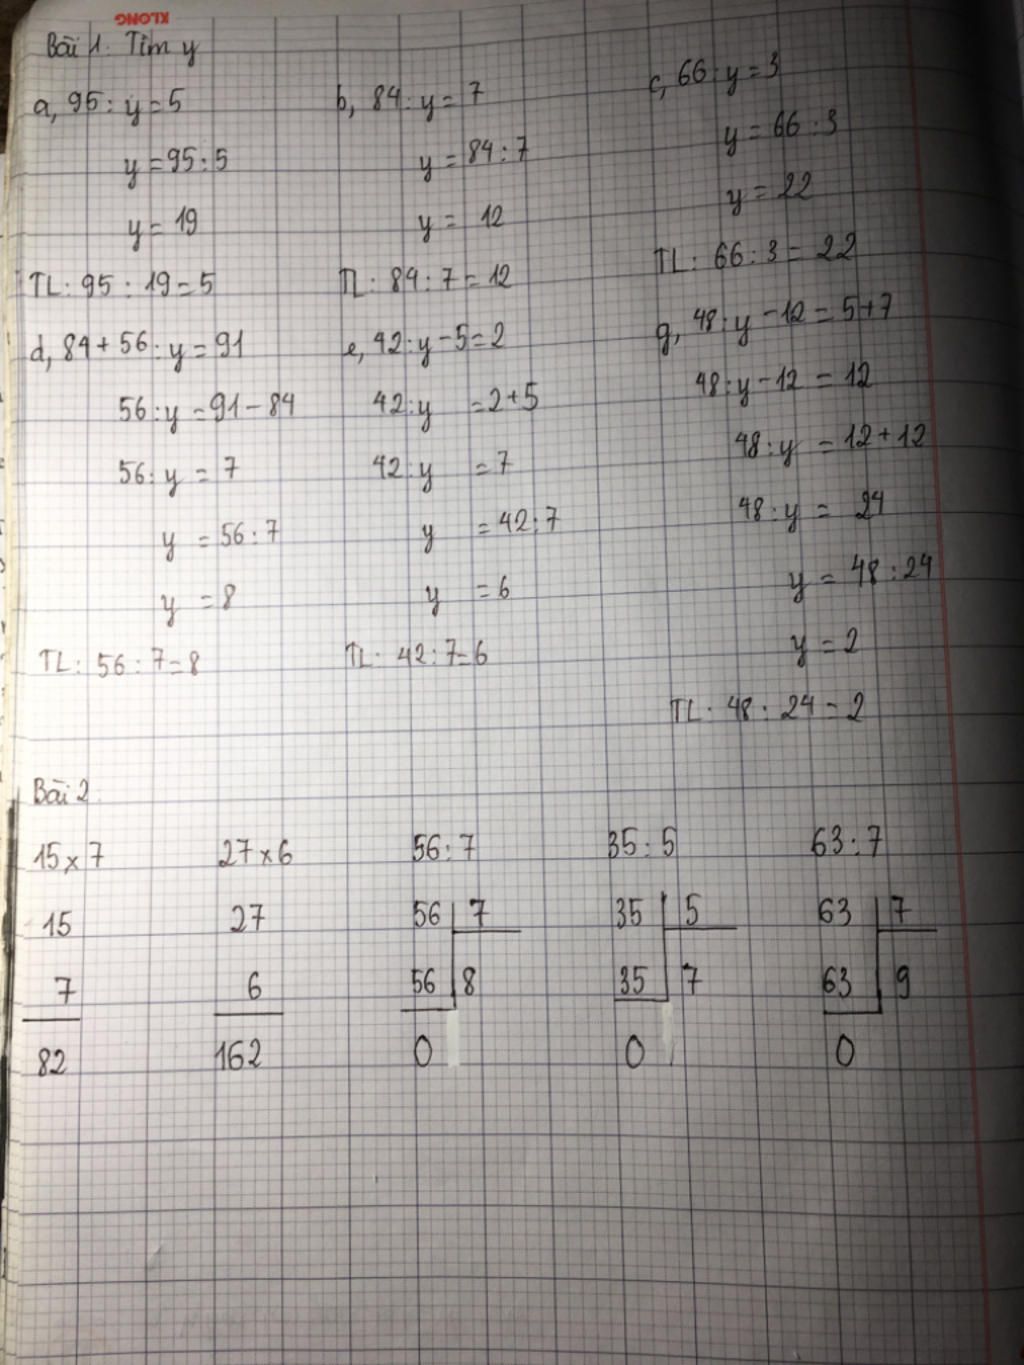 KLONG
Bài 1. Tìm y
a, 95 : y = 5
y = 95 : 5
y = 19
TL : 95 : 19 = 5
b, 84 : y = 7
y = 84 : 7
y = 12
TL : 84 : 7 = 12
c, 66 : y = 3
y = 66 : 3
y = 22
TL : 66 : 3 = 22
d, 84 + 56 : y = 91
56 : y = 91 - 84
56 : y = 7
y = 56 : 7
y = 8
TL : 56 : 7 = 8
e, 42 : y - 5 = 2
42 : y = 2 + 5
42 : y = 7
y = 42 : 7
y = 6
TL : 42 : 7 = 6
g, 48 : y - 12 = 5 + 7
48 : y - 12 = 12
48 : y = 12 + 12
48 : y = 24
y = 48 : 24
y = 2
TL : 48 : 24 = 2
Bài 2.
15 x 7 27 x 6 56 : 7 35 : 5 63 : 7
15 27 56 7 35 5 63 7
7 6 56 8 35 7 63 9
82 162 0 0 0